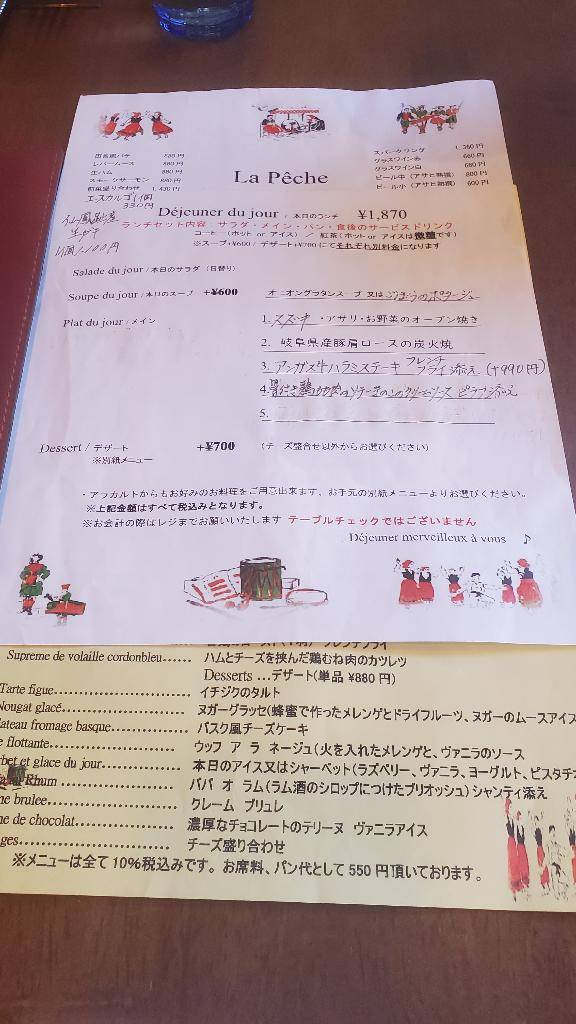 田舎風パテ 880円
レバームース 880円
生ハム 880円
スモークサーモン 880円
前菜盛り合わせ 1,430円
エスカルゴ1個
330円
生ガキ
1個 1,100円
スパークリング 1,380円
グラスワイン赤 660円
グラスワイン白 660円
ビール中（アサヒ熟撰） 800円
ビール小（アサヒ熟撰） 600円
La Pêche
Déjeuner du jour / 本日のランチ ¥1,870
ランチセット内容 サラダ・メイン・パン・食後のサービスドリンク
コーヒー （ホット or アイス） / 紅茶（ホット or アイスは微糖です）
※スープ+¥600/ デザート+¥700にてそれぞれ別料金になります
Salade du jour / 本日のサラダ （日替り）
Soupe du jour / 本日のスープ +¥600 オニオングラタンスープ 又は ごぼうのポタージュ
Plat du jour / メイン
1. スズキ・アサリ・お野菜のオーブン焼き
2. 岐阜県産豚肩ロースの炭火焼
3. アンガス牛ハラミステーキ フレンチフライ添え (+990円)
4. 骨付き鶏のソテーきのこのクリームソース ピラフ添え
5.
Dessert / デザート +¥700 （チーズ盛合せ以外からお選びください）
※別紙メニュー
・アラカルトからもお好みのお料理をご用意出来ます、お手元の別紙メニューよりお選びください。
※上記金額はすべて税込みとなります。
※お会計の際はレジまでお願いいたします テーブルチェックではございません
Déjeuner merveilleux à vous ♪
Supreme de volaille cordonbleu...... ハムとチーズを挟んだ鶏むね肉のカツレツ
Desserts …デザート(単品 ¥880 円)
Tarte figue........................ イチジクのタルト
Nougat glacé..................... ヌガーグラッセ（蜂蜜で作ったメレンゲとドライフルーツ、ヌガーのムースアイス
ateau fromage basque............... バスク風チーズケーキ
e flottante........................ ウッフ ア ラ ネージュ（火を入れたメレンゲと、ヴァニラのソース
rbet et glace du jour............... 本日のアイス又はシャーベット（ラズベリー、ヴァニラ、ヨーグルト、ピスタチオ
Rhum ........................ ババ オ ラム（ラム酒のシロップにつけたブリオッシュ）シャンティ添え
ne brulee........................ クレーム ブリュレ
ne de chocolat..................... 濃厚なチョコレートのテリーヌ ヴァニラアイス
ges........................... チーズ盛り合わせ
※メニューは全て 10%税込みです。お席料、パン代として 550 円頂いております。